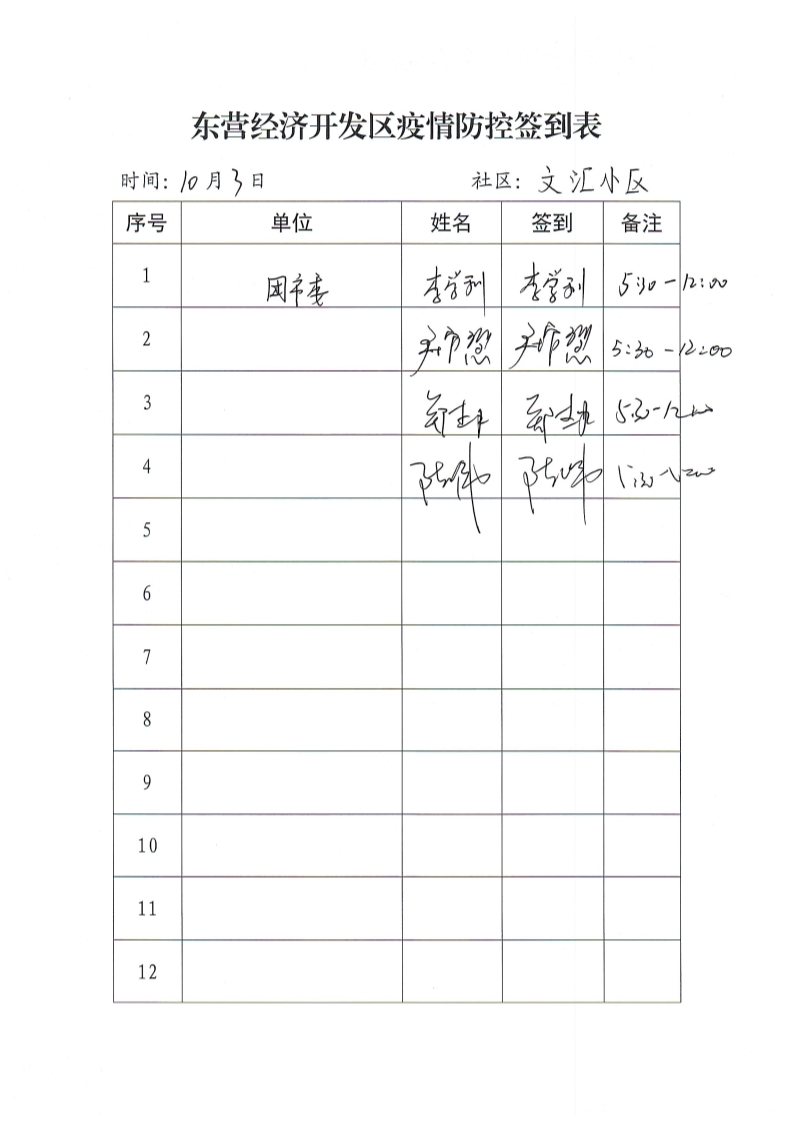 东营经济开发区疫情防控签到表
时间：10月3日 社区：文汇小区
序号 单位 姓名 签到 备注
1 团市委 李学利 李学利 5:30-12:00
2 5:30-12:00
3 5:30-12:00
4
5
6
7
8
9
10
11
12